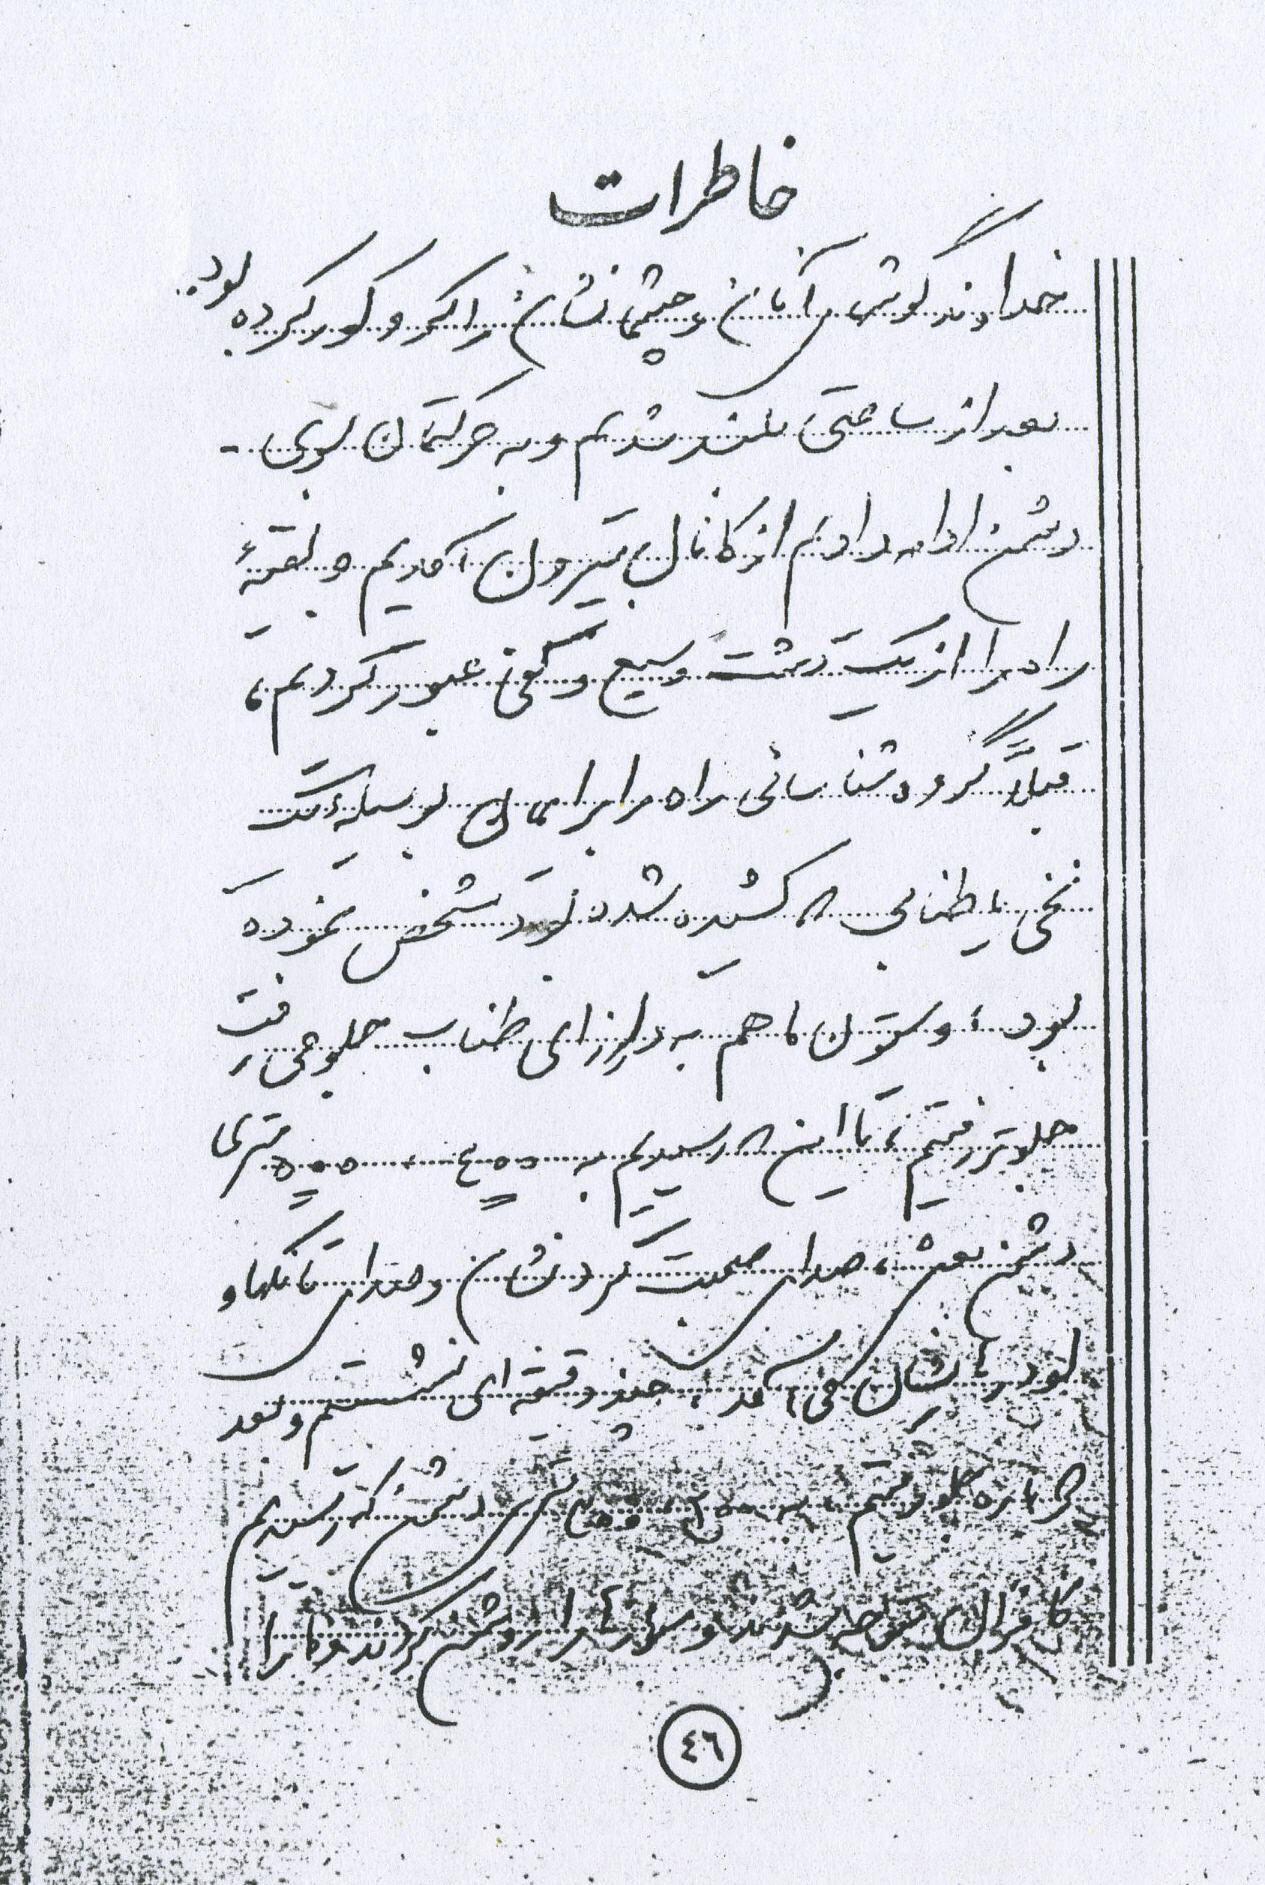 خاطرات
خداوند گوشهای آنان و چشمانشان را کر و کور کرده بود.
بعد از ساعتی بلند شدیم و به حرکتمان بسوی -
دشمن ادامه دادیم از کانال بیرون آمدیم و بقیهٔ
راه را از یک دشت وسیع و کفی عبور کردیم،
قبلاً گروه شناسائی راه را برایمان بوسیلهٔ یک
نخی یا طنابی که کشیده شده بود مشخص نموده
بود، و ستون ما هم به درازای طناب جلو می رفت
جلوتر رفتیم، تا این که رسیدیم به ۴۰۰، ۵۰۰ متری
دشمن بعثی، صدای صحبت کردنشان و صدای تانکها و
لودرهایشان می آمد، چند دقیقه ای نشستیم و بعد
دوباره جلو رفتیم، به متری دشمن که رسیدیم
کافران متوجه شدند و را روشن کردند و ما را
٤٦